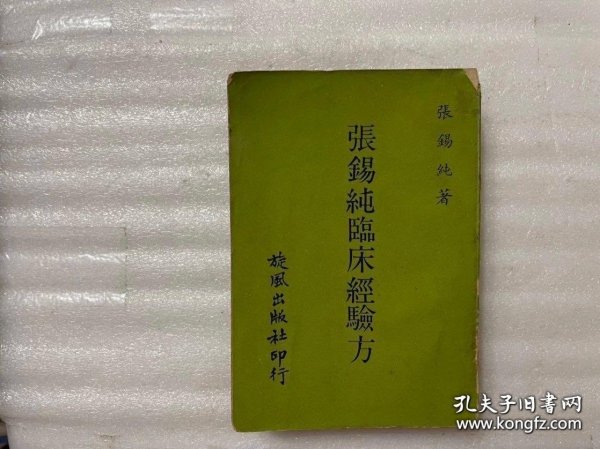 張錫純著
張錫純臨床經驗方
旋風出版社印行
孔夫子旧书网
www.kongfz.com